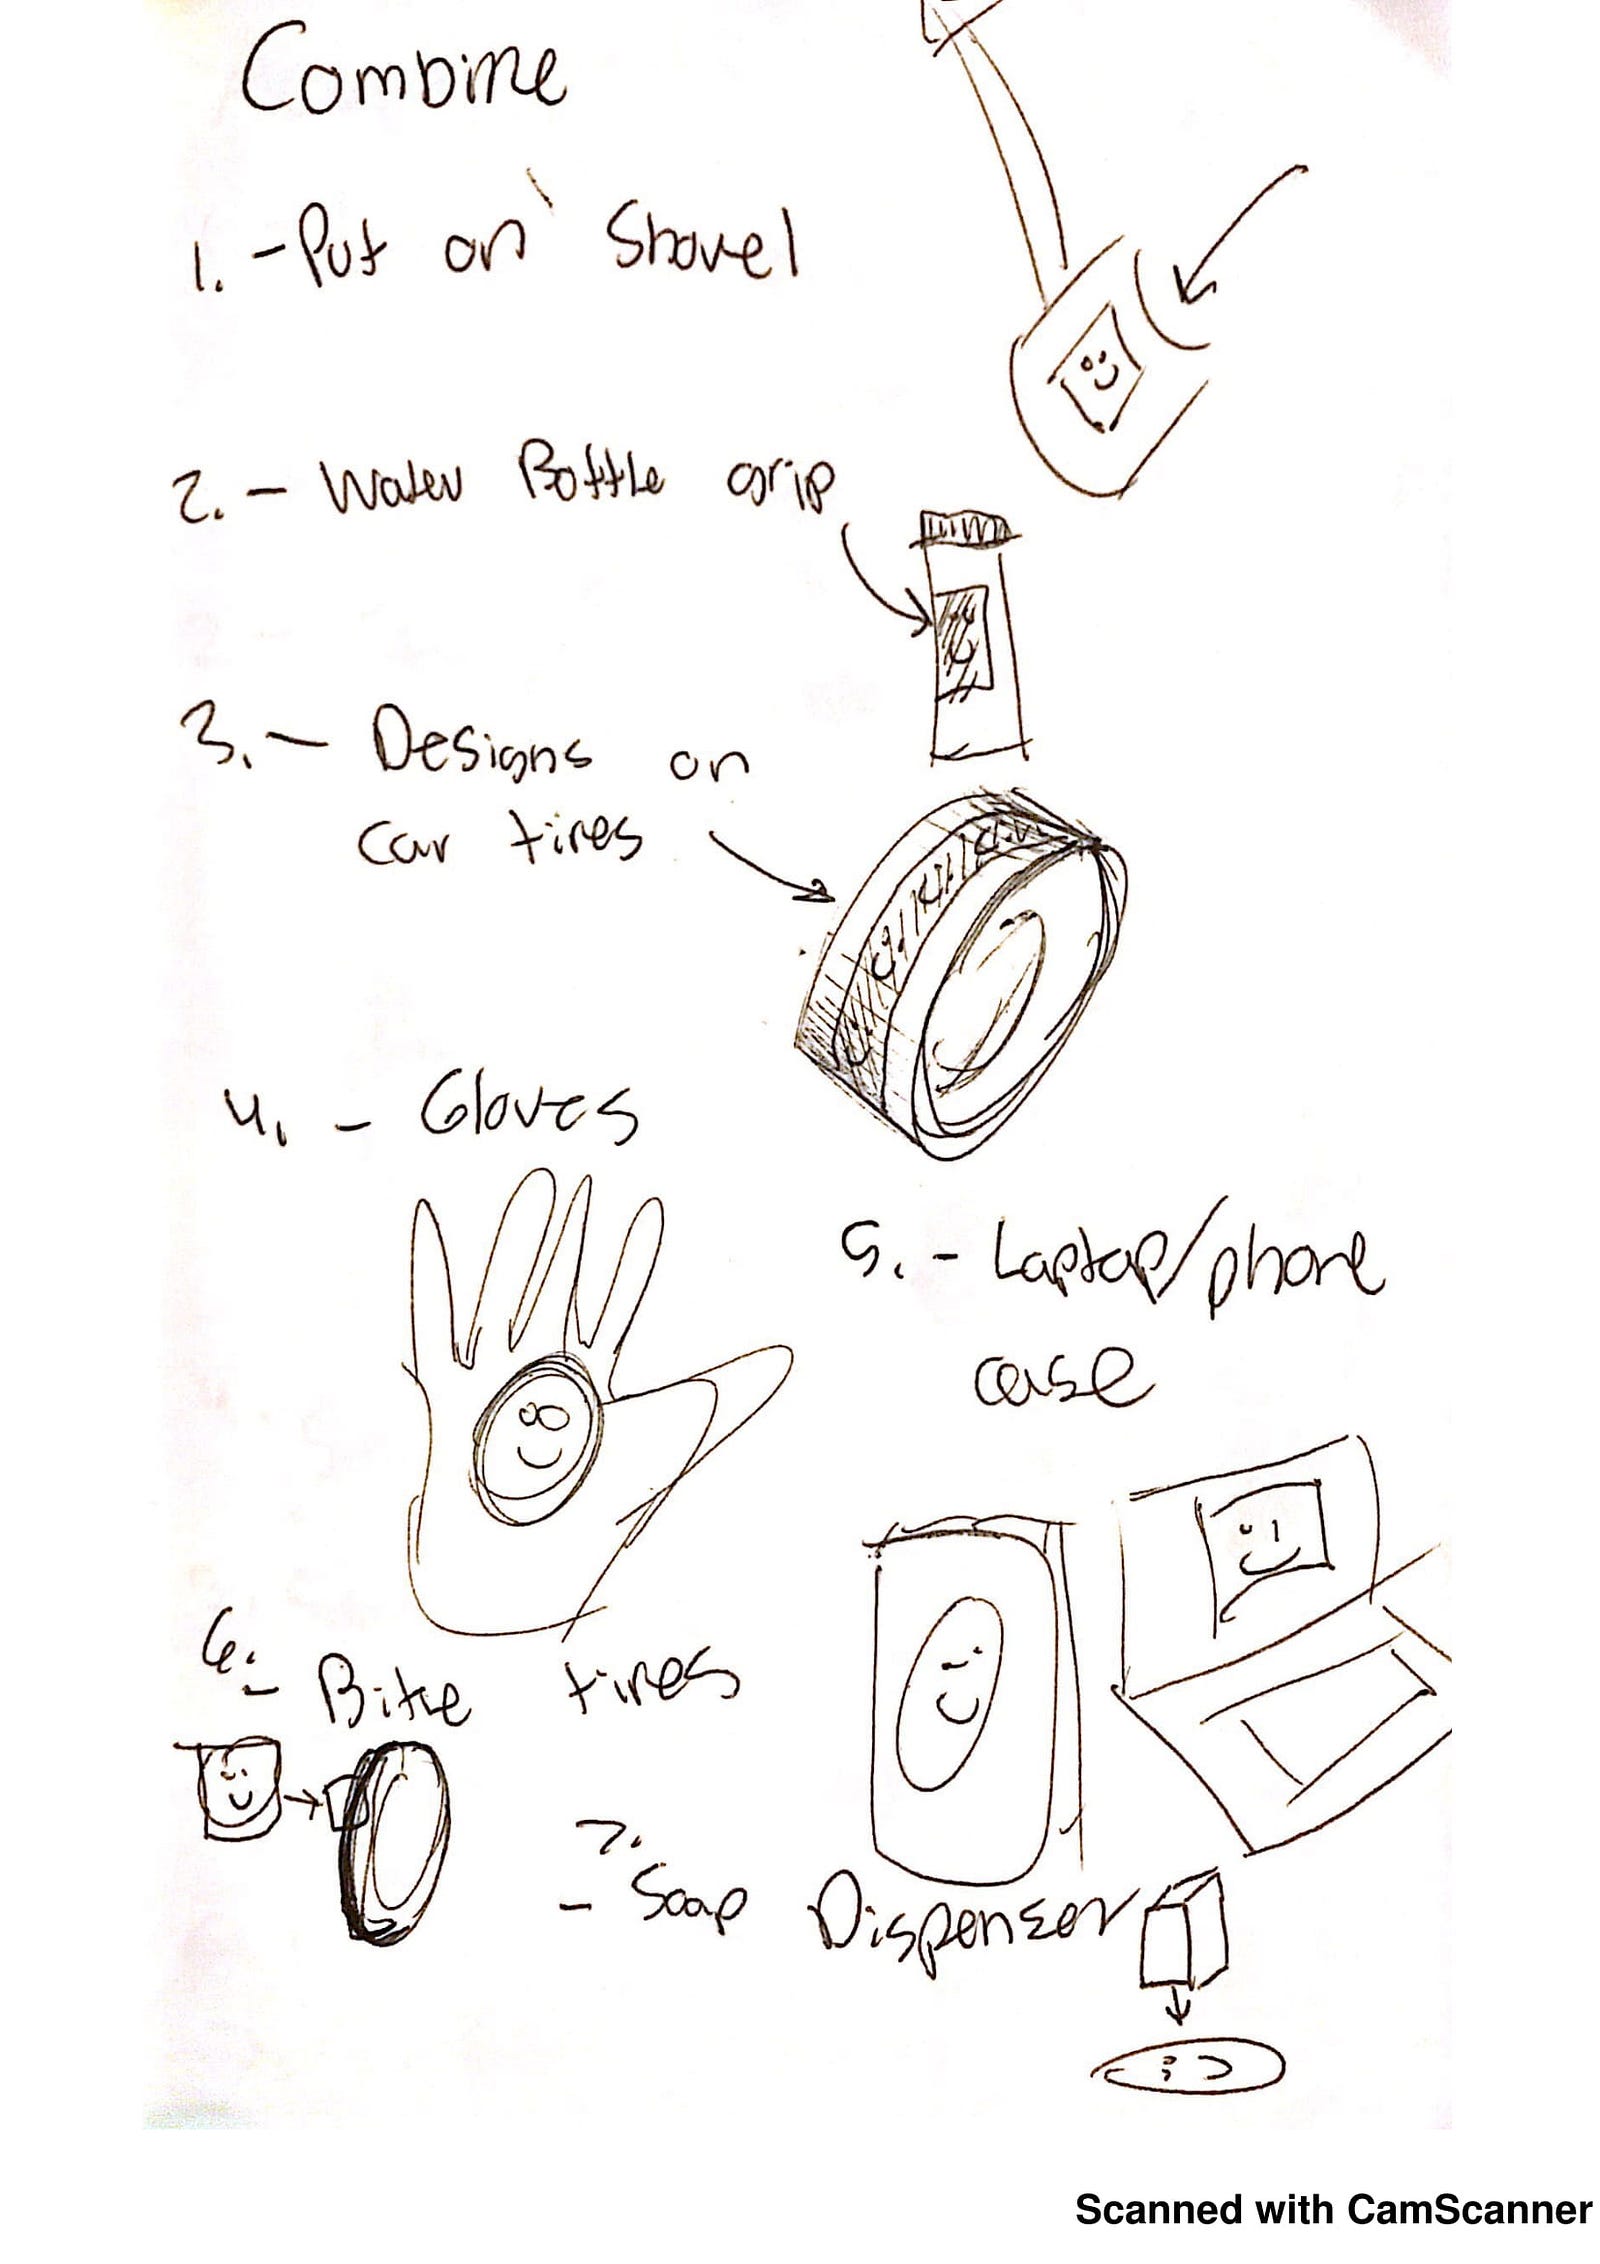 Combine
1. - Put on Shovel
2. - Water Bottle grip
3. - Designs on
car tires
4. - Gloves
5. - Laptop/phone
case
6. - Bike tires
7.
- Soap Dispenser
Scanned with CamScanner